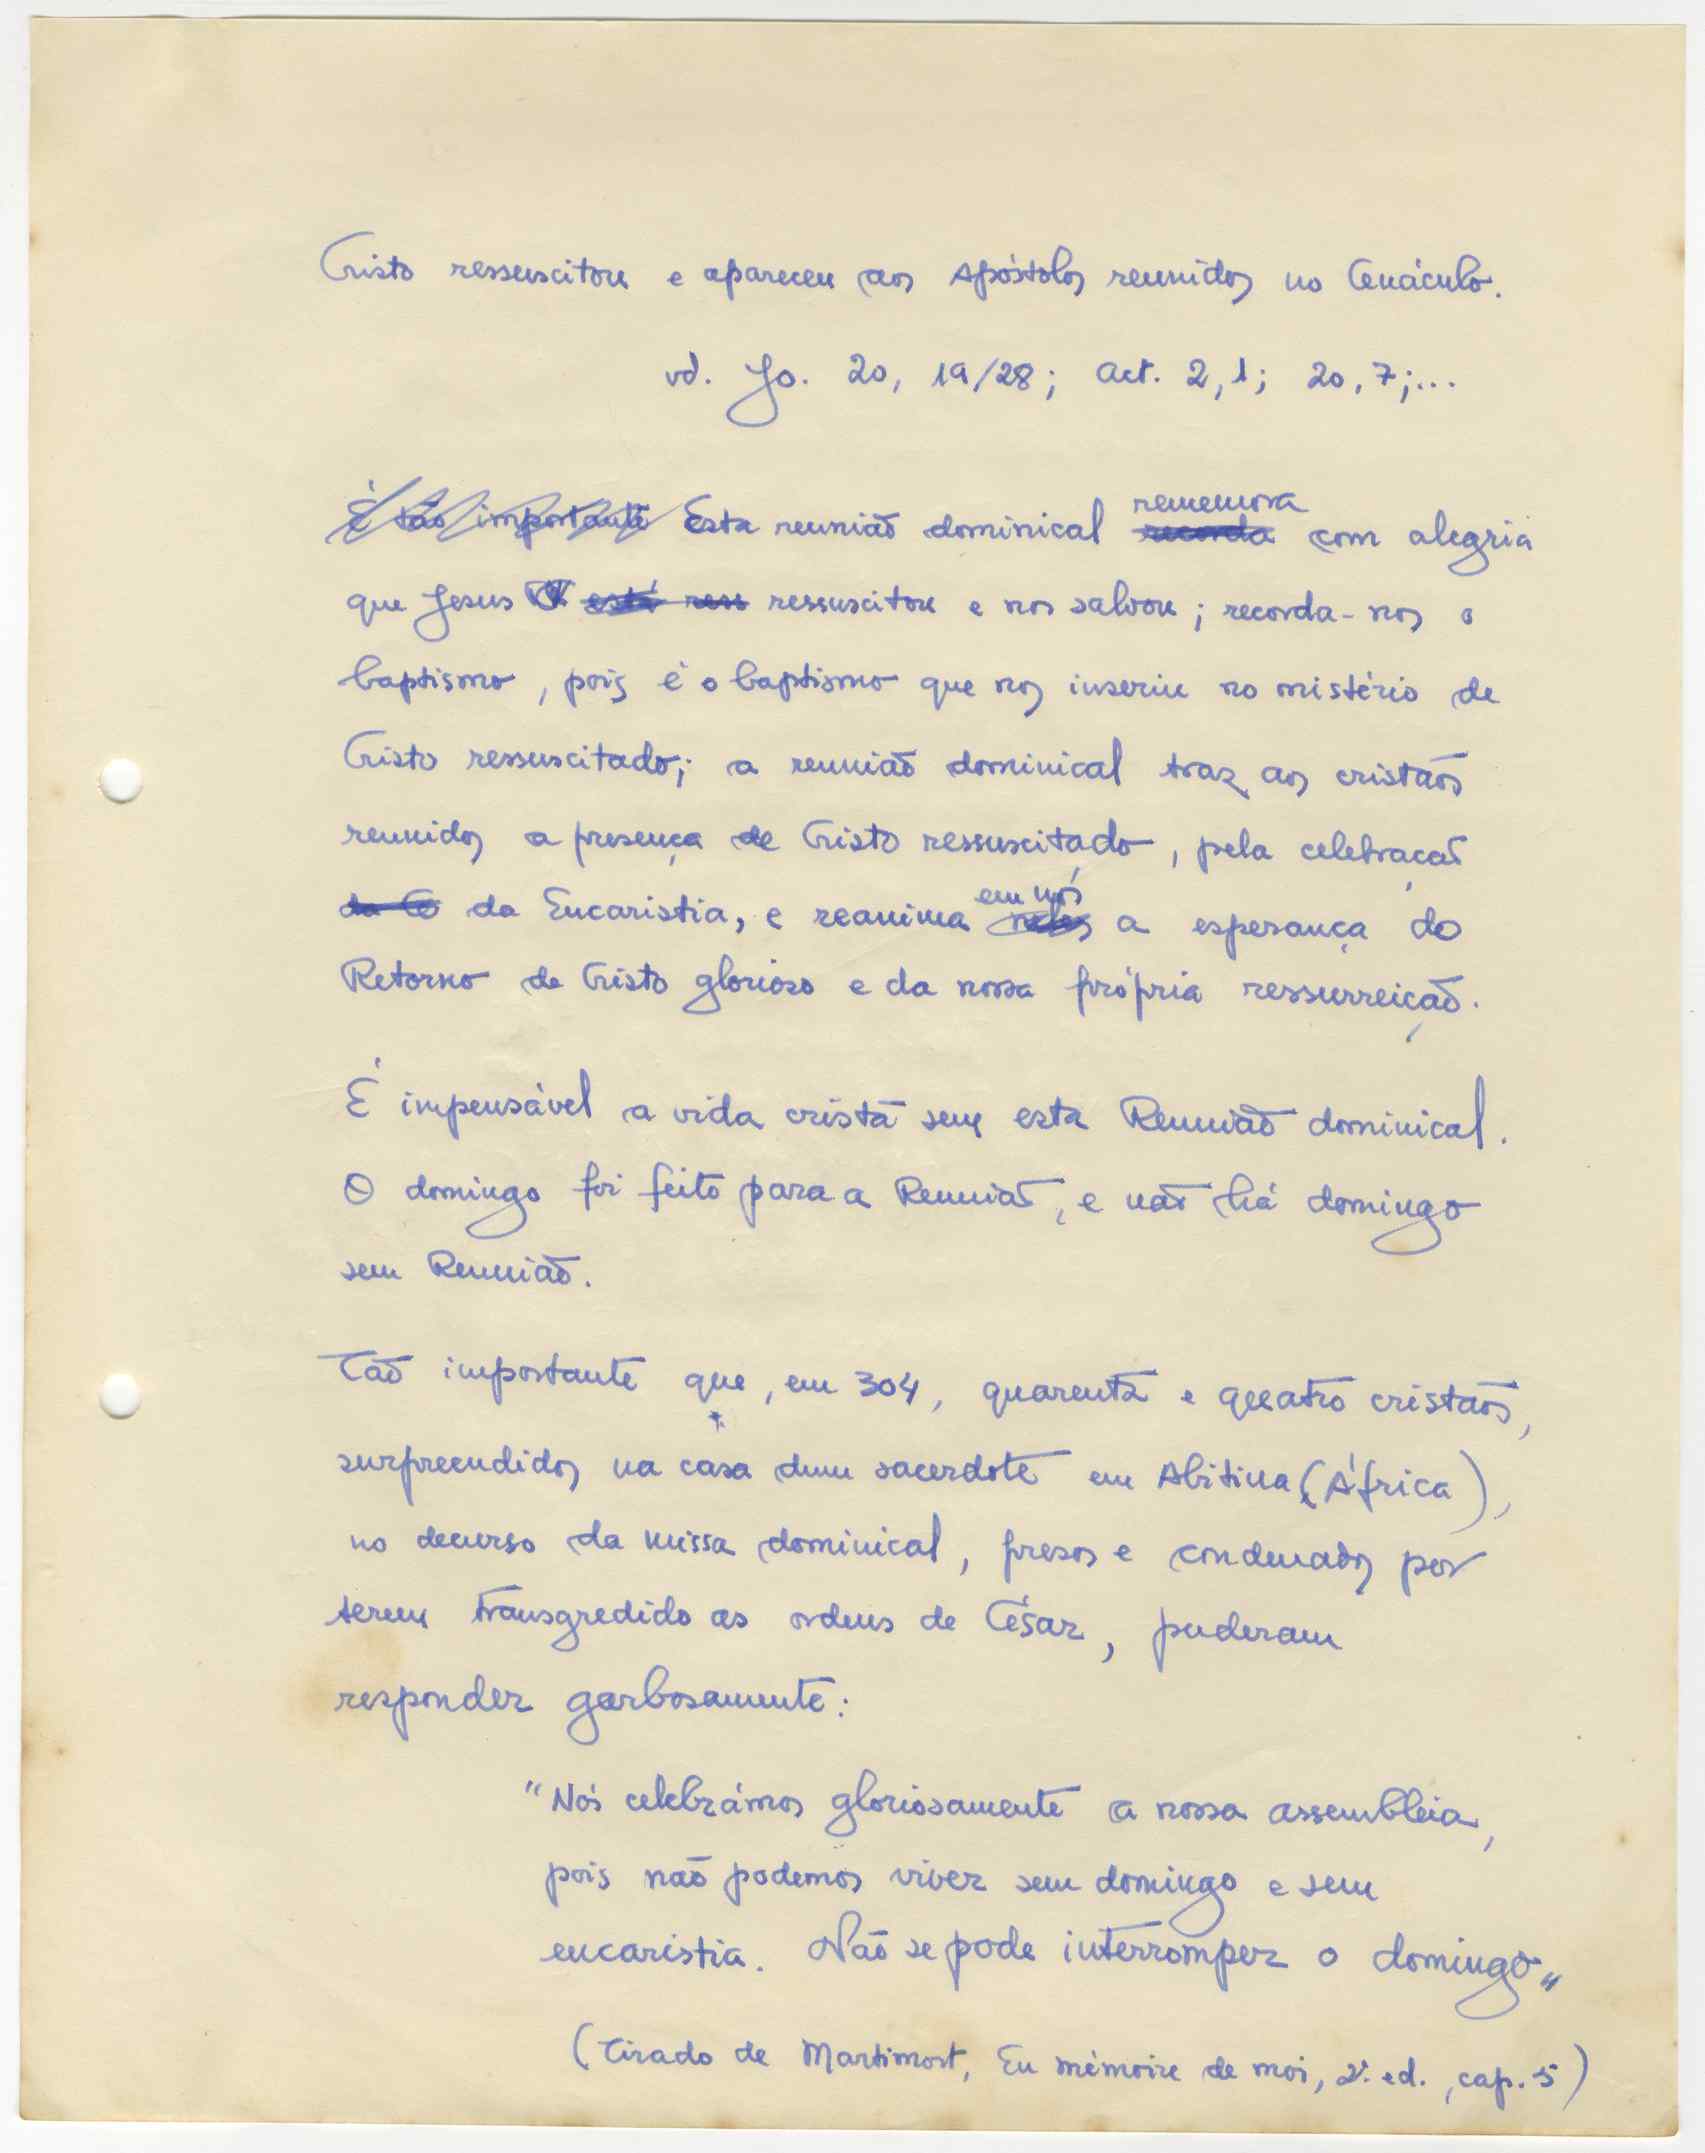 Cristo ressuscitou e apareceu aos Apóstolos reunidos no Cenáculo.
vd. Jo. 20, 19/28; Act. 2,1; 20,7;...
É tão importante Esta reunião dominical recorda rememora com alegria
que Jesus está ress ressuscitou e nos salvou; recorda-nos o
baptismo, pois é o baptismo que nos inseriu no mistério de
Cristo ressuscitado; a reunião dominical traz aos cristãos
reunidos a presença de Cristo ressuscitado, pela celebração
da C da Eucaristia, e reanima neles em nós a esperança do
Retorno de Cristo glorioso e da nossa própria ressurreição.
É impensável a vida cristã sem esta Reunião dominical.
O domingo foi feito para a Reunião, e não há domingo
sem Reunião.
Tão importante que, em 304, quarenta e quatro cristãos,
surpreendidos na casa dum sacerdote em Abitina (África),
no decurso da missa dominical, presos e condenados por
terem transgredido as ordens de César, puderam
responder garbosamente:
"Nós celebrámos gloriosamente a nossa assembleia,
pois não podemos viver sem domingo e sem
eucaristia. Não se pode interromper o domingo"
(Tirado de Martimort, En mémoire de moi, 2ª. ed., cap. 5)